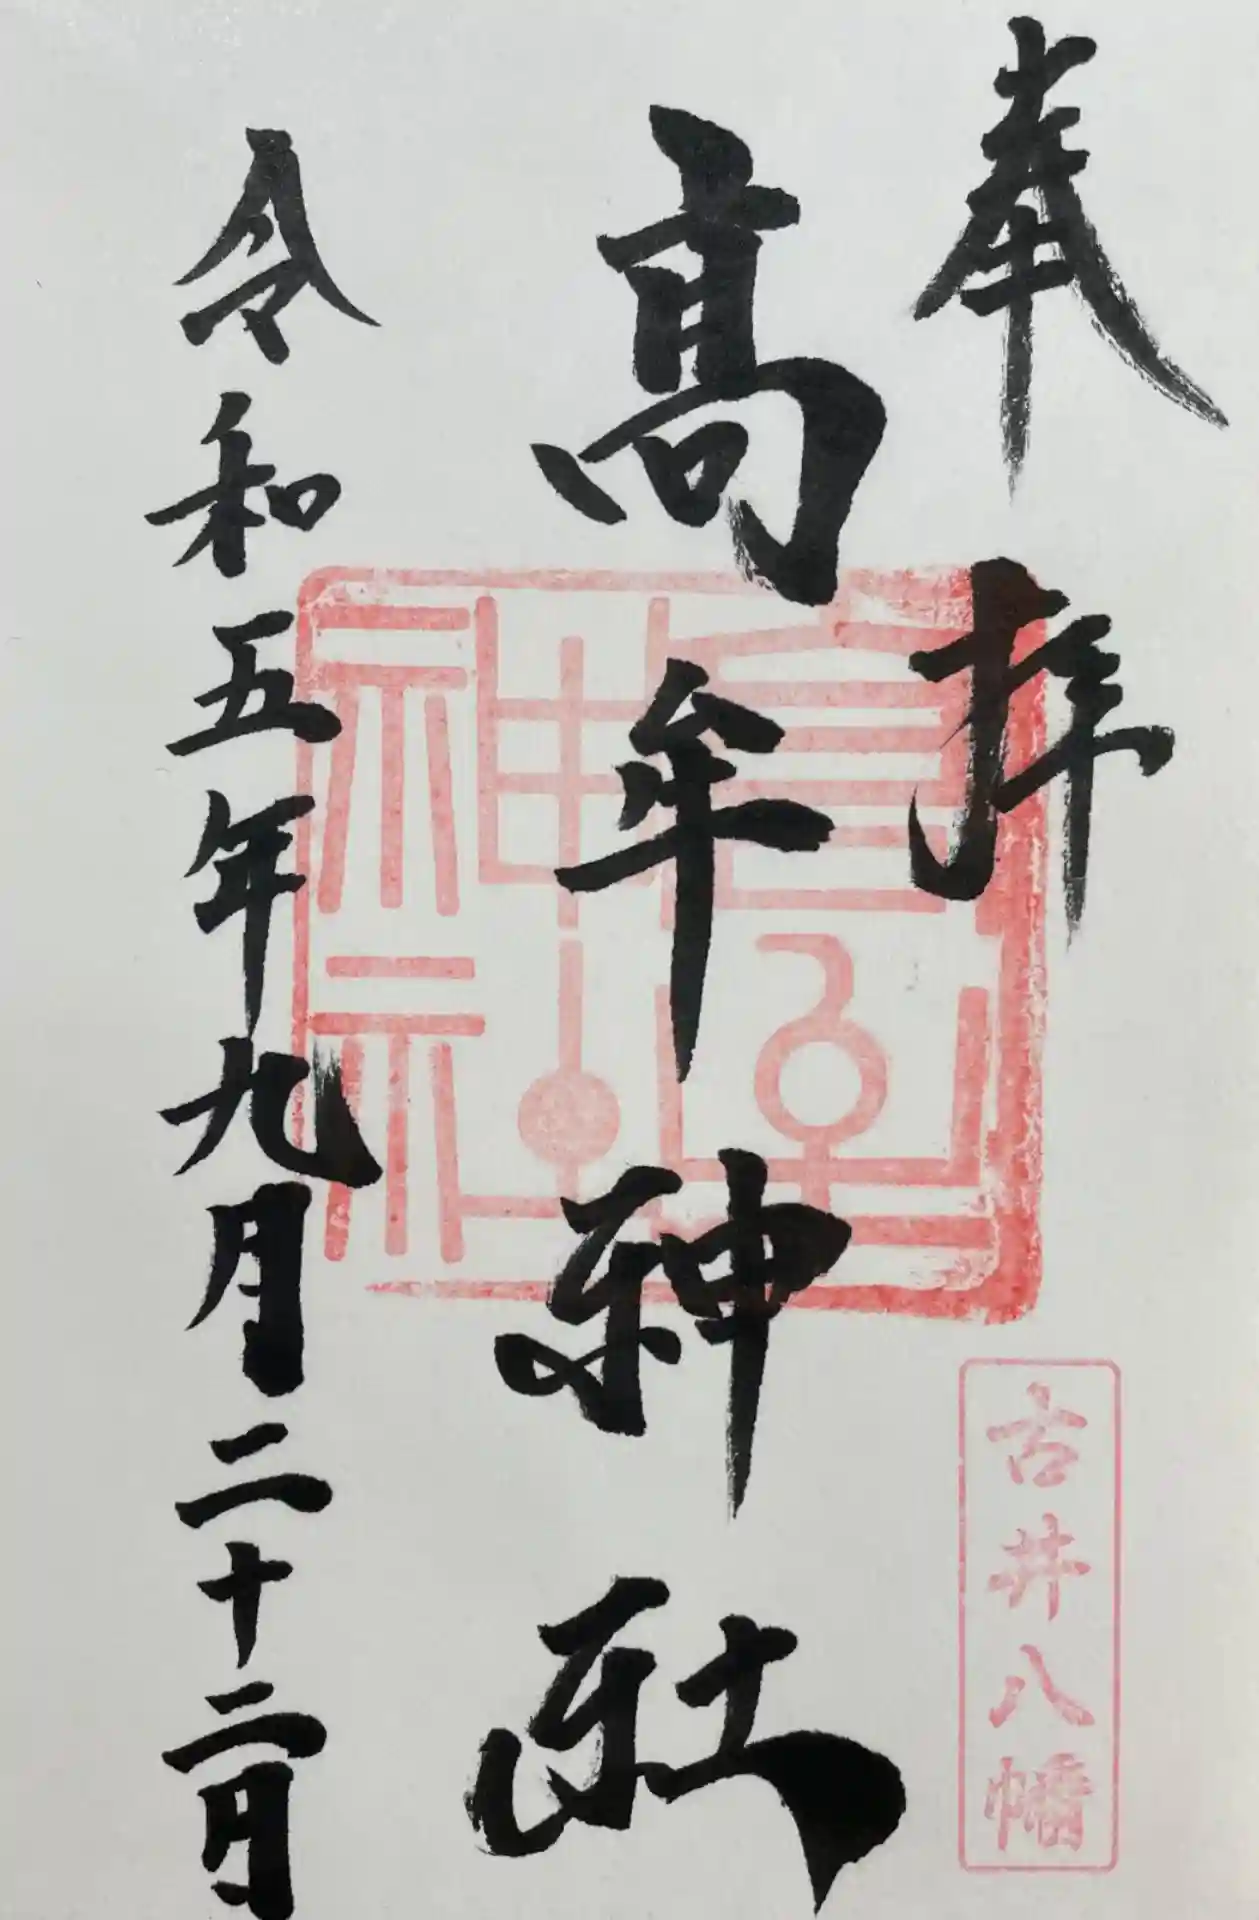 奉拝
古井八幡
高牟神社
高牟神社
令和五年九月二十二日